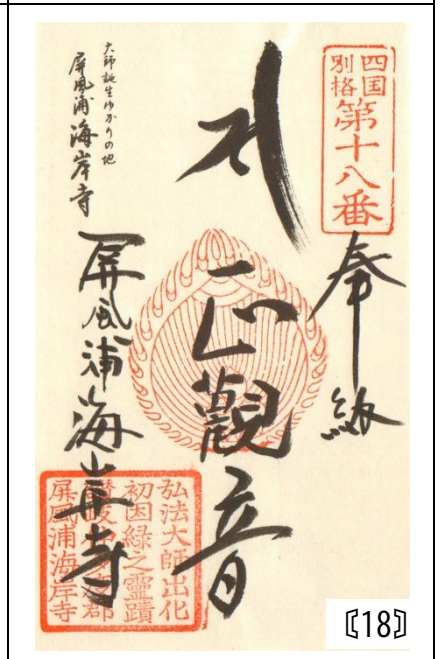 四国
別格
第十八番
奉納
正觀音
大師誕生ゆかりの地
屏風浦海岸寺
屏風浦海岸寺
弘法大師出化
初因縁之靈蹟
屏風浦海岸寺
〖18〗